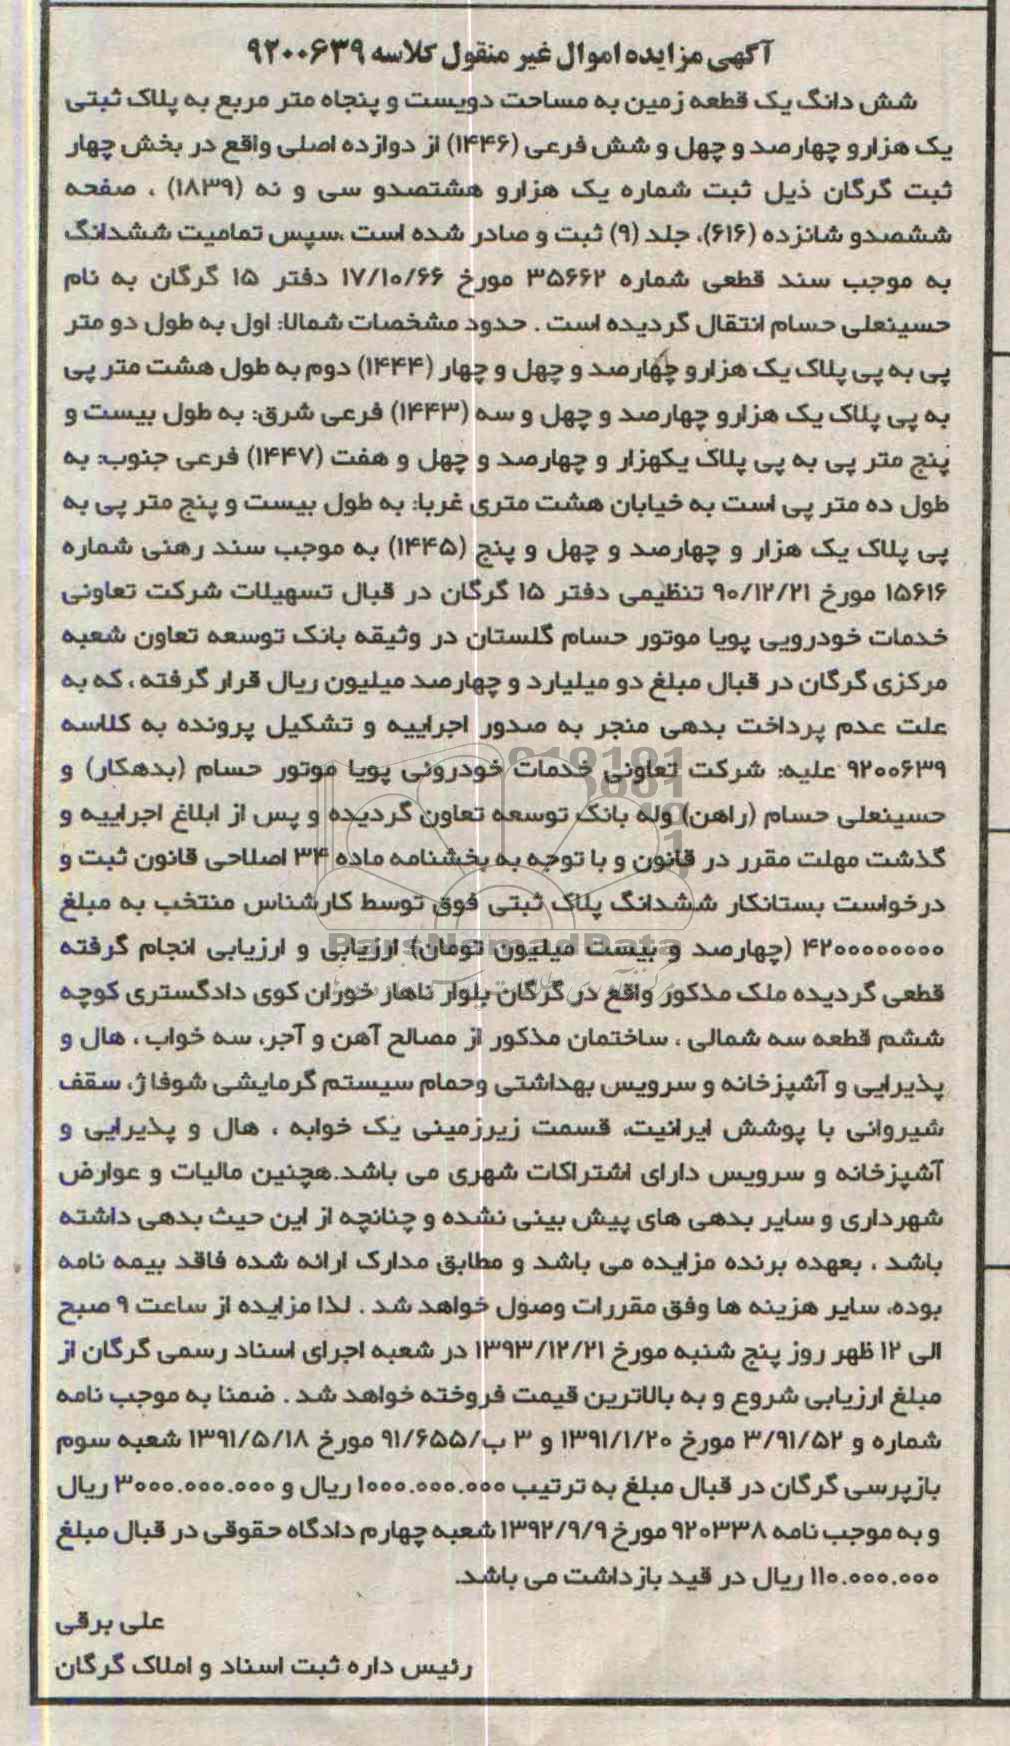 آگهی مزایده اموال غیر منقول کلاسه ۹۲۰۰۶۳۹
شش دانگ یک قطعه زمین به مساحت دویست و پنجاه متر مربع به پلاک ثبتی
یک هزارو چهارصد و چهل و شش فرعی (۱۴۴۶) از دوازده اصلی واقع در بخش چهار
ثبت گرگان ذیل ثبت شماره یک هزارو هشتصدو سی و نه (۱۸۳۹) ، صفحه
ششصدو شانزده (۶۱۶)، جلد (۹) ثبت و صادر شده است ،سپس تمامیت ششدانگ
به موجب سند قطعی شماره ۳۵۶۶۲ مورخ ۱۷/۱۰/۶۶ دفتر ۱۵ گرگان به نام
حسینعلی حسام انتقال گردیده است . حدود مشخصات شمالا: اول به طول دو متر
پی به پی پلاک یک هزارو چهارصد و چهل و چهار (۱۴۴۴) دوم به طول هشت متر پی
به پی پلاک یک هزارو چهارصد و چهل و سه (۱۴۴۳) فرعی شرق: به طول بیست و
پنج متر پی به پی پلاک یکهزار و چهارصد و چهل و هفت (۱۴۴۷) فرعی جنوب: به
طول ده متر پی است به خیابان هشت متری غربا: به طول بیست و پنج متر پی به
پی پلاک یک هزار و چهارصد و چهل و پنج (۱۴۴۵) به موجب سند رهنی شماره
۱۵۶۱۶ مورخ ۹۰/۱۲/۲۱ تنظیمی دفتر ۱۵ گرگان در قبال تسهیلات شرکت تعاونی
خدمات خودرویی پویا موتور حسام گلستان در وثیقه بانک توسعه تعاون شعبه
مرکزی گرگان در قبال مبلغ دو میلیارد و چهارصد میلیون ریال قرار گرفته ، که به
علت عدم پرداخت بدهی منجر به صدور اجراییه و تشکیل پرونده به کلاسه
۹۲۰۰۶۳۹ علیه: شرکت تعاونی خدمات خودرونی پویا موتور حسام (بدهکار) و
حسینعلی حسام (راهن) وله بانک توسعه تعاون گردیده و پس از ابلاغ اجراییه و
گذشت مهلت مقرر در قانون و با توجه به بخشنامه ماده ۳۴ اصلاحی قانون ثبت و
درخواست بستانکار ششدانگ پلاک ثبتی فوق توسط کارشناس منتخب به مبلغ
۴۲۰۰۰۰۰۰۰۰ (چهارصد و بیست میلیون تومان) ارزیابی و ارزیابی انجام گرفته
قطعی گردیده ملک مذکور واقع در گرگان بلوار ناهار خوران کوی دادگستری کوچه
ششم قطعه سه شمالی ، ساختمان مذکور از مصالح آهن و آجر، سه خواب ، هال و
پذیرایی و آشپزخانه و سرویس بهداشتی وحمام سیستم گرمایشی شوفاژ، سقف
شیروانی با پوشش ایرانیت، قسمت زیرزمینی یک خوابه ، هال و پذیرایی و
آشپزخانه و سرویس دارای اشتراکات شهری می باشد.هچنین مالیات و عوارض
شهرداری و سایر بدهی های پیش بینی نشده و چنانچه از این حیث بدهی داشته
باشد ، بعهده برنده مزایده می باشد و مطابق مدارک ارائه شده فاقد بیمه نامه
بوده، سایر هزینه ها وفق مقررات وصول خواهد شد . لذا مزایده از ساعت ۹ صبح
الی ۱۲ ظهر روز پنج شنبه مورخ ۱۳۹۳/۱۲/۲۱ در شعبه اجرای اسناد رسمی گرگان از
مبلغ ارزیابی شروع و به بالاترین قیمت فروخته خواهد شد . ضمنا به موجب نامه
شماره و ۳/۹۱/۵۲ مورخ ۱۳۹۱/۱/۲۰ و ۳ ب/۹۱/۶۵۵ مورخ ۱۳۹۱/۵/۱۸ شعبه سوم
بازپرسی گرگان در قبال مبلغ به ترتیب ۱۰۰۰.۰۰۰.۰۰۰ ریال و ۳۰۰۰.۰۰۰.۰۰۰ ریال
و به موجب نامه ۹۲۰۳۳۸ مورخ ۱۳۹۲/۹/۹ شعبه چهارم دادگاه حقوقی در قبال مبلغ
۱۱۰.۰۰۰.۰۰۰ ریال در قید بازداشت می باشد.
علی برقی
رئیس داره ثبت اسناد و املاک گرگان